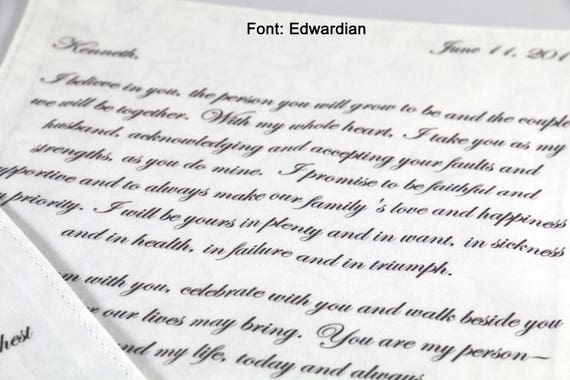 Font: Edwardian
Kenneth, June 11, 201
I believe in you, the person you will grow to be and the couple
we will be together. With my whole heart, I take you as my
husband, acknowledging and accepting your faults and
strengths, as you do mine. I promise to be faithful and
pportive and to always make our family's love and happiness
priority. I will be yours in plenty and in want, in sickness
and in health, in failure and in triumph.
m with you, celebrate with you and walk beside you
our lives may bring. You are my person—
nd my life, today and always.
hest